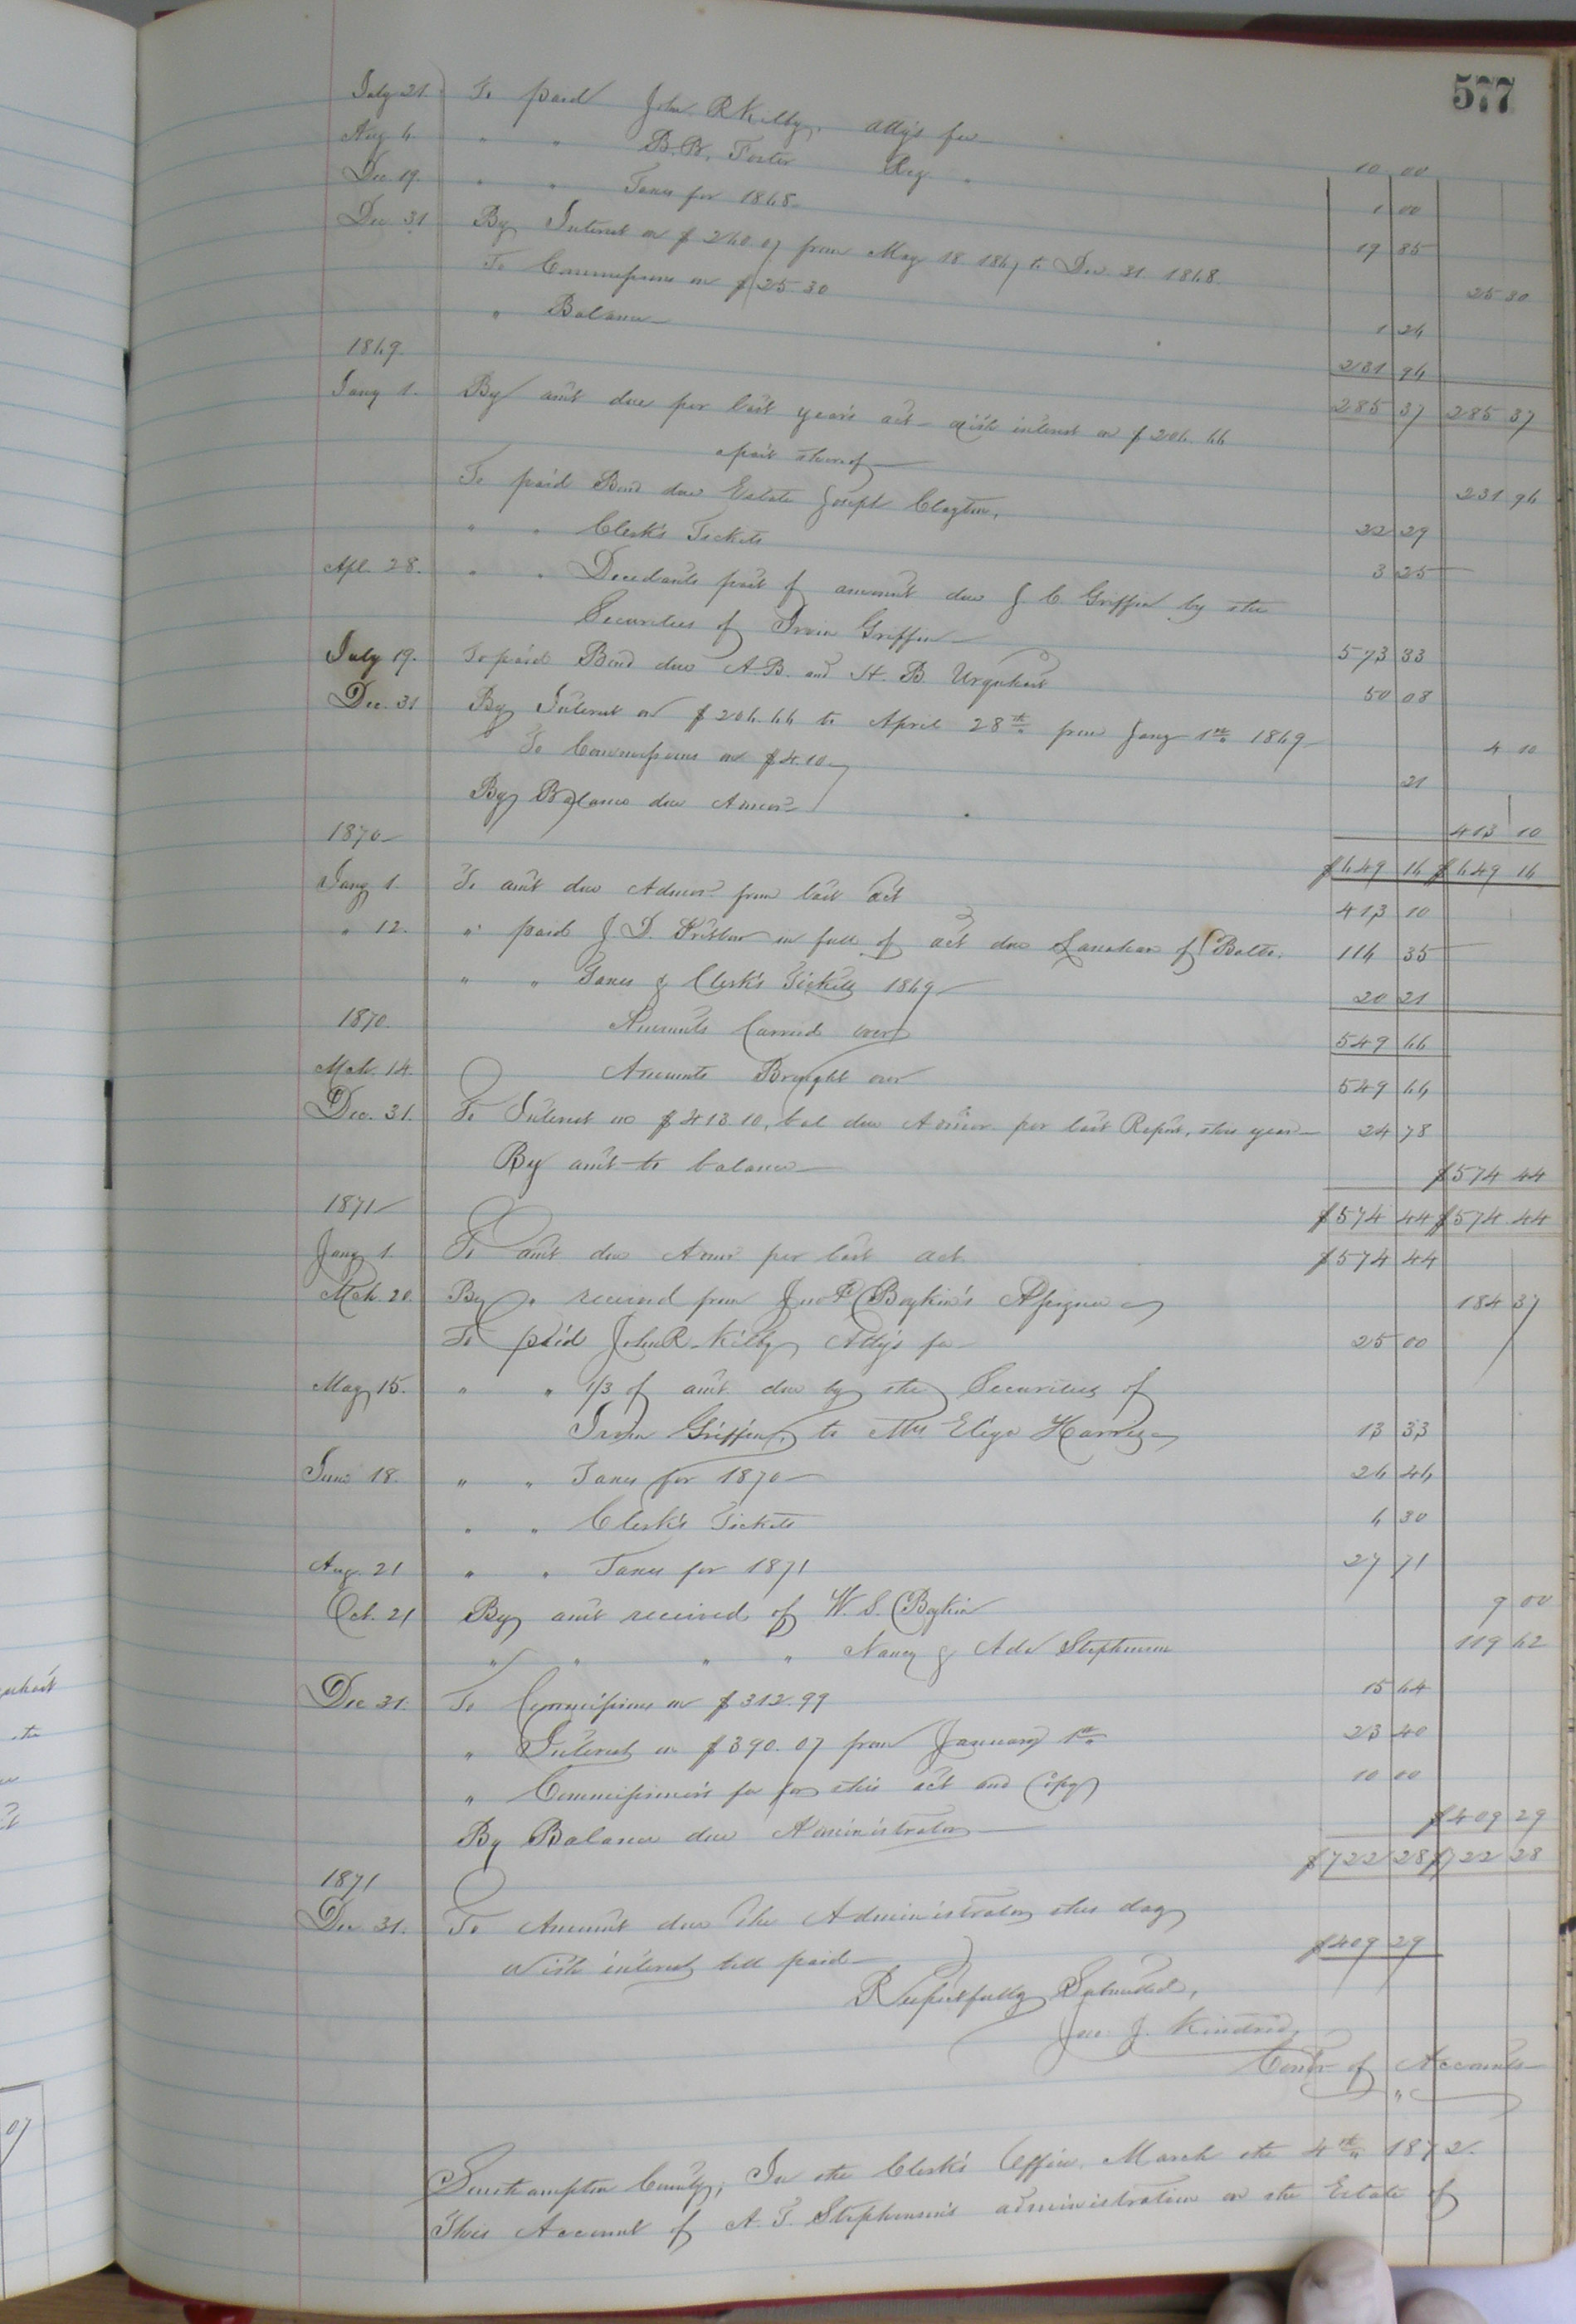 577
July 21. To paid John R Kilby, atty's fee 10 00
Aug 6. " " B. B. Foster Reg " 1 00
Dec. 19. " " Taxes for 1868 19 85
Dec. 31 By Interest on $260.07 from May 18 1867 to Dec. 31. 1868. 25 30
To Commissions on $25.30 1 26
" Balance 231 96
1869. 285 37 285 37
Jany 1. By am't due per last year's act with interest on $206.66
a part thereof 231 96
To paid Bond due Estate Joseph Clayton, 22 29
" " Clerk's Tickets 3 25
Apl. 28. " " Decedants part of amount due J C Griffin by the
Securities of Irvin Griffin 573 33
July 19. To paid Bond due A. B. and H. B. Urquhart 50 08
Dec. 31 By Interest on $206.66 to April 28th from Jany 1st 1869 4 10
To Commissions on $4.10 21
By Balance due Admor 413 10
1870 $649 16 $649 16
Jany 1. To am't due Admor from last act 413 10
" 12. " paid J. D. in full of act due of Balto. 116 35
" " Taxes & Clerk's Tickets 1869 20 21
1870. Amounts Carried over 549 66
Mch. 14. Amounts Brought over 549 66
Dec. 31. To Interest on $413.10, bal due Admor per last Report, this year 24 78
By am't to balance $574 44
1871 $574 44 $574 44
Jany 1. To am't due Admor per last act. $574 44
Mch 20. By " received from Jno Boykin's Assignee 184 37
To paid John R. Kilby Atty's fee 25 00
May 15. " " 1/3 of am't due by the Securities of
Irvin Griffin, to Mrs Eliza Harris 13 33
June 18. " " Taxes for 1870 26 46
" " Clerk's Tickets 6 30
Aug. 21 " " Taxes for 1871 27 71
Oct. 21 By am't received of W. S. Boykin 9 00
" " " " Nancy & Ade Stephenson 119 62
Dec 31. To Commissions on $312.99 15 64
" Interest on $390.07 from January 1st 23 40
" Commissioner's fee for this act and Copy 10 00
By Balance due Administrator $409 29
1871 $722 28 $722 28
Dec 31. To Amount due the Administrator this day
with interest till paid $409 29
Respectfully Submitted,
Jno. J. Kindred,
Comr of Accounts
Southampton County; In the Clerk's Office March the 4th 1872.
This Account of A. T. Stephenson's administration on the Estate of
07